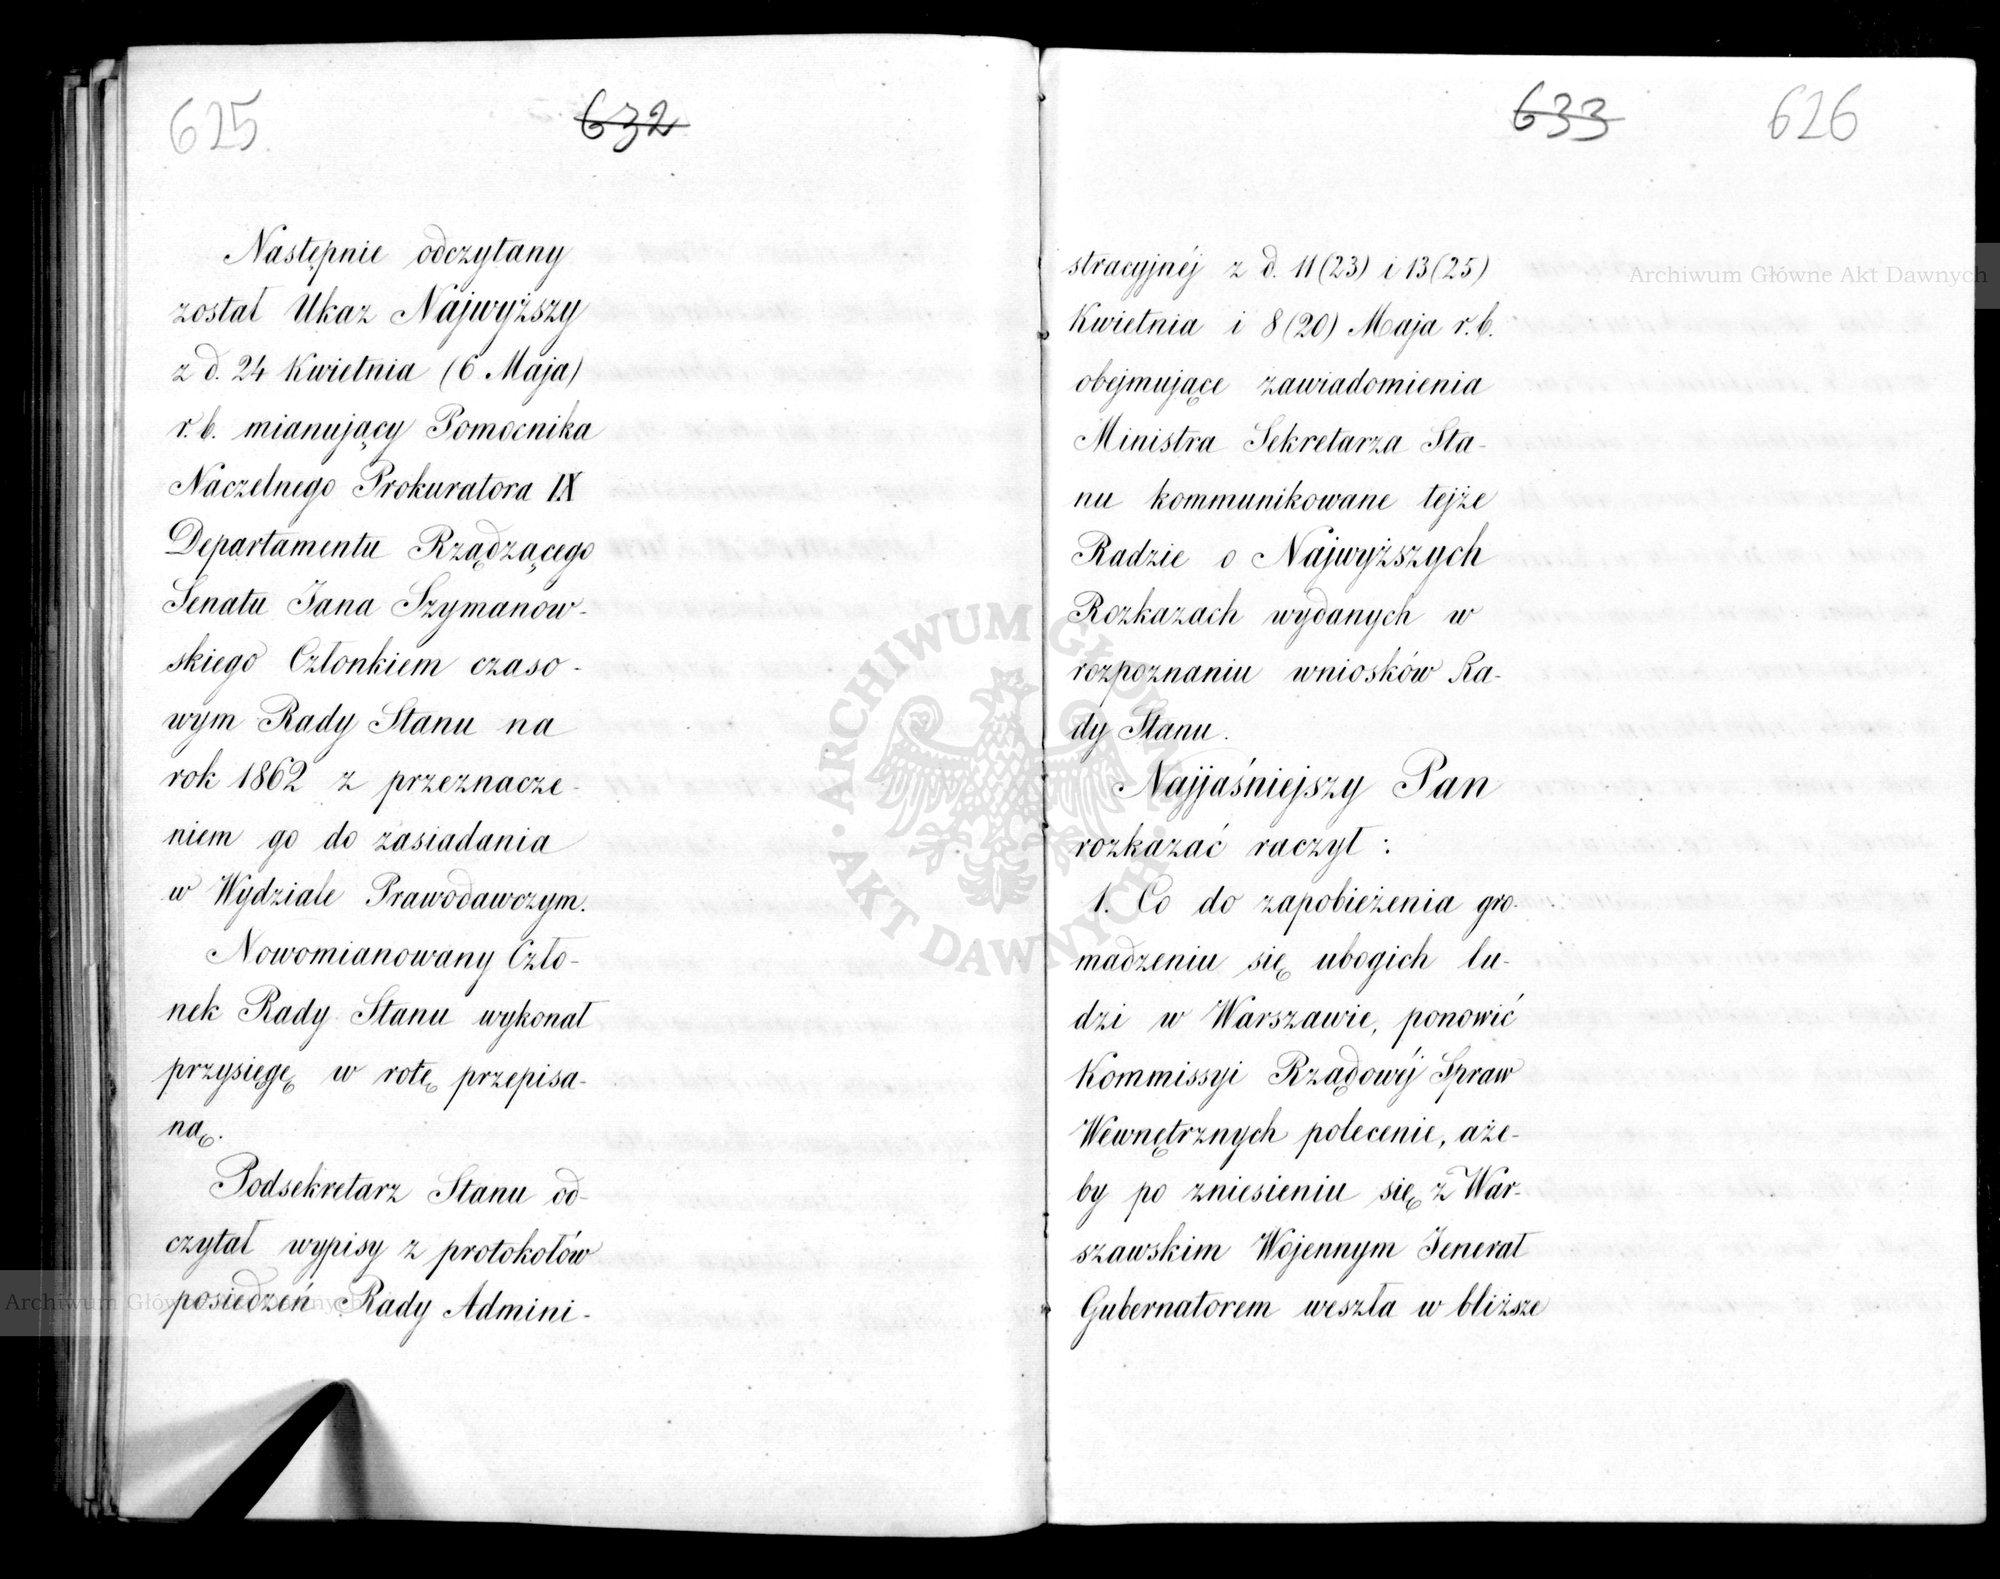 625
632
Następnie odczytany
został Ukaz Najwyższy
z d. 24 Kwietnia (6 Maja)
r. b. mianujący Pomocnika
Naczelnego Prokuratora IX
Departamentu Rządzącego
Senatu Jana Szymanow-
skiego Członkiem czaso-
wym Rady Stanu na
rok 1862 z przeznacze-
niem go do zasiadania
w Wydziale Prawodawczym.
Nowomianowany Czło-
nek Rady Stanu wykonał
przysięgę w rotę przepisa-
ną.
Podsekretarz Stanu od-
czytał wypisy z protokołów
posiedzeń Rady Admini-
633
626
stracyjnéj z d. 11(23) i 13(25)
Kwietnia i 8(20) Maja r. b.
obejmujące zawiadomienia
Ministra Sekretarza Sta-
nu kommunikowane tejże
Radzie o Najwyższych
Rozkazach wydanych w
rozpoznaniu wniosków Ra-
dy Stanu.
Najjaśniejszy Pan
rozkazać raczył:
1. Co do zapobieżenia gro-
madzeniu się ubogich lu-
dzi w Warszawie, ponowić
Kommissyi Rządowéj Spraw
Wewnętrznych polecenie, aże-
by po zniesieniu się z War-
szawskim Wojennym Jenerał
Gubernatorem weszła w bliższe
Archiwum Główne Akt Dawnych
Archiwum Główne Akt Dawnych
ARCHIWUM GŁÓWNE
AKT DAWNYCH